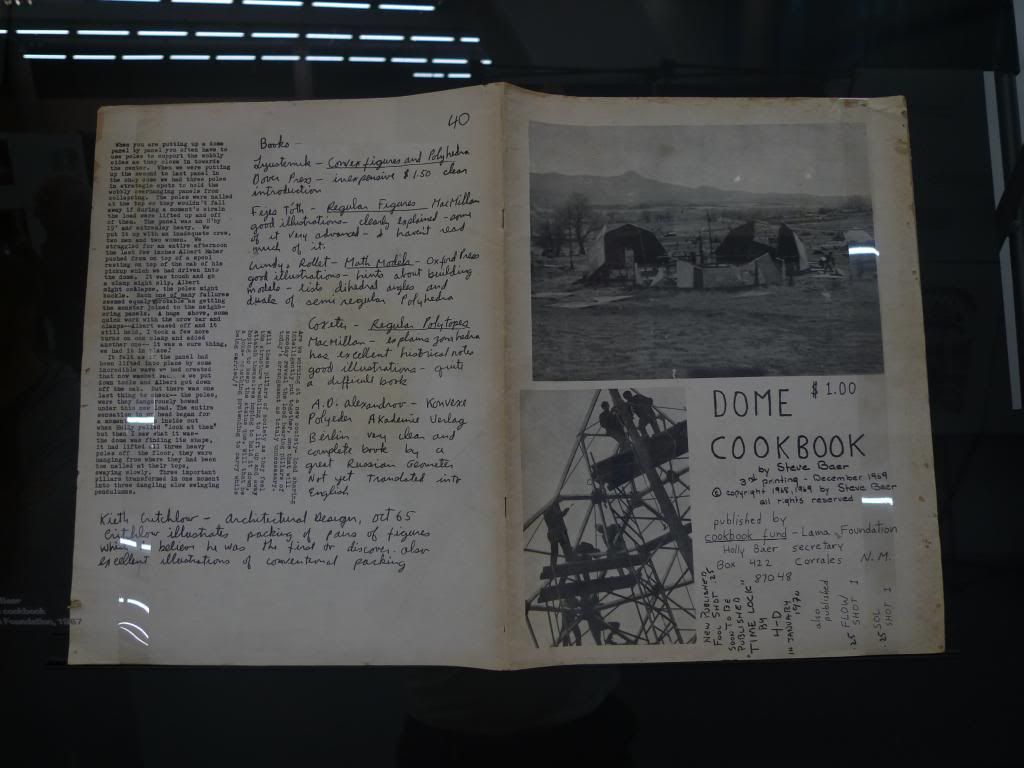 40
When you are putting up a dome
panel by panel you often have to
use poles to support the wobbly
sides as they close in towards
the center. When we were putting
up the second to last panel in
the shop dome we had three poles
in strategic spots to hold the
wobbly overhanging panels from
collapsing. The poles were nailed
at the top so they wouldn't fall
away if during a moment's strain
the load were lifted up and off
of them. The panel was an 8'by
19' and extremley heavy. We
put it up with an inadequate crew,
two men and two women. We
struggled for an entire afternoon
the last few inches Albert Maher
pushed from on top of a spool
resting on top of the cab of his
pickup which we had driven into
the dome. It was touch and go
a clamp might slip, Albert
might collapse, the poles might
buckle. Each one of many failures
seemed equally probable as getting
the monster joined to the neighb-
oring panels. A huge shove, some
quick work with the crow bar and
clamps--Albert eased off and it
still held, I took a few more
turns on one clamp and added
another one-- It was a sure thing,
we had it in place!
It felt as if the panel had
been lifted into place by some
incredible wave we had created
that now
we put
down tools and Albert got down
off the cab. But there was one
last thing to check-- the poles,
were they dangerously bowed
under this new load. The entire
sensation in my head began for
a moment inside out
when Holly yelled "Look at them"
but then I saw what it was-
the dome was finding its shape,
it had lifted all three heavy
poles off the floor, they were
hanging from where they had been
toe nailed at their tops,
swaying slowly. Three important
pillars transformed in one moment
into three dangling slow swinging
pendulums.
Books -
Lyusternik - Convex figures and Polyhedra
Dover Press - inexpensive $1.50 clear
introduction
Fejes Toth - Regular Figures - MacMillan
good illustrations - clearly explained - some
of it very advanced - I haven't read
much of it.
Cundy, Rollet - Math Models - Oxford Press
good illustrations - hints about building
models - lists dihedral angles and
duals of semi regular Polyhedra
Coxeter - Regular Polytopes
MacMillan - explains zonahedra
has excellent historical notes
good illustrations - quite
a difficult book
A.D. Alexandrov - Konvexe
Polyeder Akademie Verlag
Berlin very clear and
complete book by a
great Russian Geometer
Not yet Translated into
English
Kieth Critchlow - Architectural Design, Oct 65
Critchlow illustrates packing of pairs of figures
believe he was the first to discover. also
excellent illustrations of conventional packing
$1.00
DOME
COOKBOOK
by Steve Baer
3rd printing - December 1969
© copyright 1968, 1969 by Steve Baer
all rights reserved
published by
cookbook fund - Lama Foundation
Holly Baer secretary
Box 422 Corrales N.M.
87048
NEW PUBLISHED
FOOL SHOT .25
SOON TO BE
PUBLISHED
"TIME LOCK"
BY
4-D
IN JANUARY
1970
also
published
FLOW
SHOT 1
.25
SOL
SHOT 1
.25
Baer
cookbook
Foundation, 1967